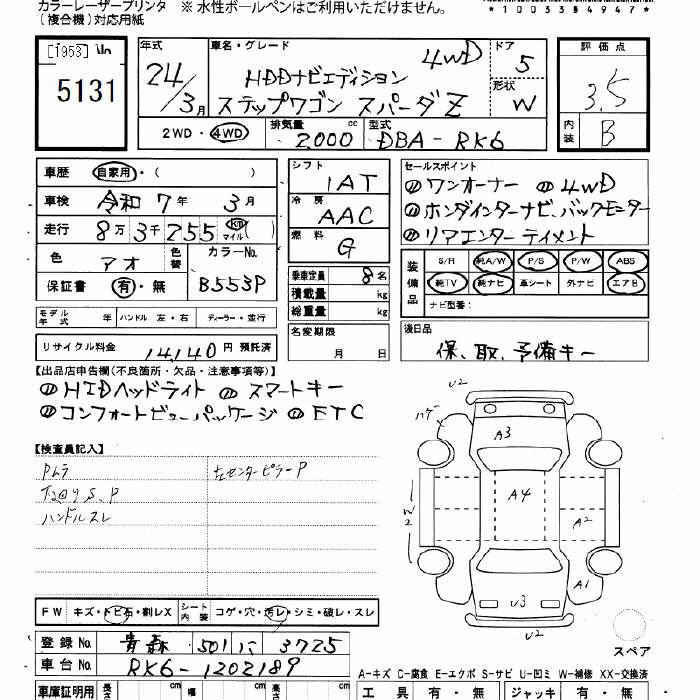 カラーレーザープリンタ ※ 水性ボールペンはご利用いただけません。
(複合機)対応用紙
*1003354947*
[1953]
5131
年式
24/3月
車名・グレード
4WD
HDDナビエディション
ステップワゴン スパーダZ
ドア
5
形状
W
評価点
3.5
内装
B
2WD・4WD
排気量
2000 cc
型式
DBA-RK6
車歴 自家用・( )
車検 令和7年 3月
走行 8万3千255 km マイル ( )
色 アオ 色替 カラーNo.
B553P
保証書 有・無
シフト
1AT
冷房
AAC
燃料
G
乗車定員 8名
積載量 kg
総重量 kg
名変期限
月 日
セールスポイント
ワンオーナー 4WD
ホンダインターナビ、バックモニター
リアエンターテイメント
装備品
S/R 純A/W P/S P/W ABS
純TV 純ナビ 革シート 外ナビ エアB
ナビ型番:
後日品
保、取、予備キー
モデル年式 年 ハンドル 左・右 ディーラー・並行
リサイクル料金 14,140円 預託済
【出品店申告欄(不良箇所・欠品・注意事項等)】
HIDヘッドライト スマートキー
コンフォートビューパッケージ ETC
【検査員記入】
Pムラ
左センターピラーP
ハンドルスレ
U2
ハゲ
A3
A4
W2
A2
A1
U3
U2
スペア
FW キズ・トビ石・割レX シート内装 コゲ・穴・汚レ・シミ・破レ・スレ
登録No. 青森 501 に 3725
車台No. RK6-1202189
A-キズ C-腐食 E-エクボ S-サビ U-凹ミ W-補修 XX-交換済
車庫証明用 長さ cm 幅 cm 高さ cm
工具 有・無 ジャッキ 有・無